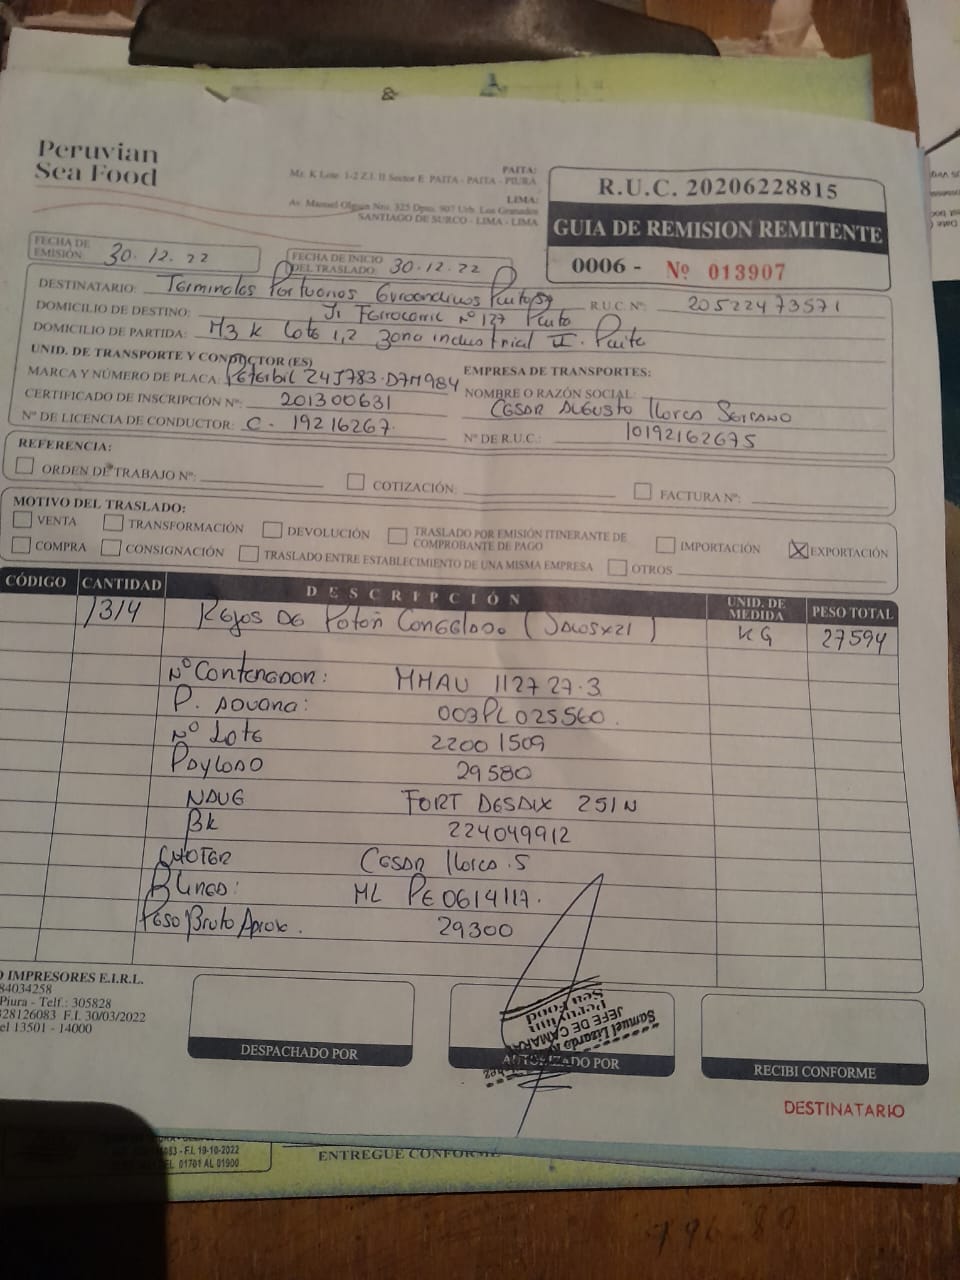 Peruvian
Sea Food
PAITA:
Mz. K Lote. 1-2 Z.I. II Sector E PAITA - PAITA - PIURA
LIMA:
Av. Manuel Olguin Nro. 325 Dpto. 907 Urb. Los Granados
SANTIAGO DE SURCO - LIMA - LIMA
R.U.C. 20206228815
GUIA DE REMISION REMITENTE
0006 - Nº 013907
FECHA DE EMISIÓN 30.12.22
FECHA DE INICIO DEL TRASLADO: 30.12.22
DESTINATARIO: Terminales Portuarios Euroandinos Paita SA R.U.C Nº: 20522473571
DOMICILIO DE DESTINO: Jr Ferrocarril Nº 127 Paita
DOMICILIO DE PARTIDA: Mz K Lote 1,2 Zona industrial II. Paita
UNID. DE TRANSPORTE Y CONDUCTOR (ES)
MARCA Y NÚMERO DE PLACA: Peterbil Z4J783-D7M984
EMPRESA DE TRANSPORTES:
CERTIFICADO DE INSCRIPCIÓN Nº: 201300631
NOMBRE O RAZÓN SOCIAL: CESAR AUGUSTO Llorca Serrano
Nº DE LICENCIA DE CONDUCTOR: C - 19216267
Nº DE R.U.C.: 10192162675
REFERENCIA:
ORDEN DE TRABAJO Nº: COTIZACIÓN: FACTURA Nº:
MOTIVO DEL TRASLADO:
VENTA TRANSFORMACIÓN DEVOLUCIÓN TRASLADO POR EMISIÓN ITINERANTE DE COMPROBANTE DE PAGO IMPORTACIÓN EXPORTACIÓN
COMPRA CONSIGNACIÓN TRASLADO ENTRE ESTABLECIMIENTO DE UNA MISMA EMPRESA OTROS
CÓDIGO CANTIDAD DESCRIPCIÓN UNID. DE MEDIDA PESO TOTAL
1314 Rejos De Potón Congelado KG 27594
Nº Contenedor: MMAU 112727-3
P. Aduana: 003PL025560.
Nº Lote 22001509
Payload 29580
NAVE FORT DESAIX 251N
BK 224049912
CHOFER CESAR Llorca .S
B Linea: ML PE0614117.
Peso Bruto Aprox. 29300
IMPRESORES E.I.R.L.
84034258
Piura - Telf.: 305828
328126083 F.I. 30/03/2022
el 13501 - 14000
DESPACHADO POR
AUTORIZADO POR
RECIBI CONFORME
Samuel Lizardo
JEFE DE CAMARA
Peruvian
Sea Food
DESTINATARIO
083 - F.I. 19-10-2022
DEL 01701 AL 01900
ENTREGUE CONFORME